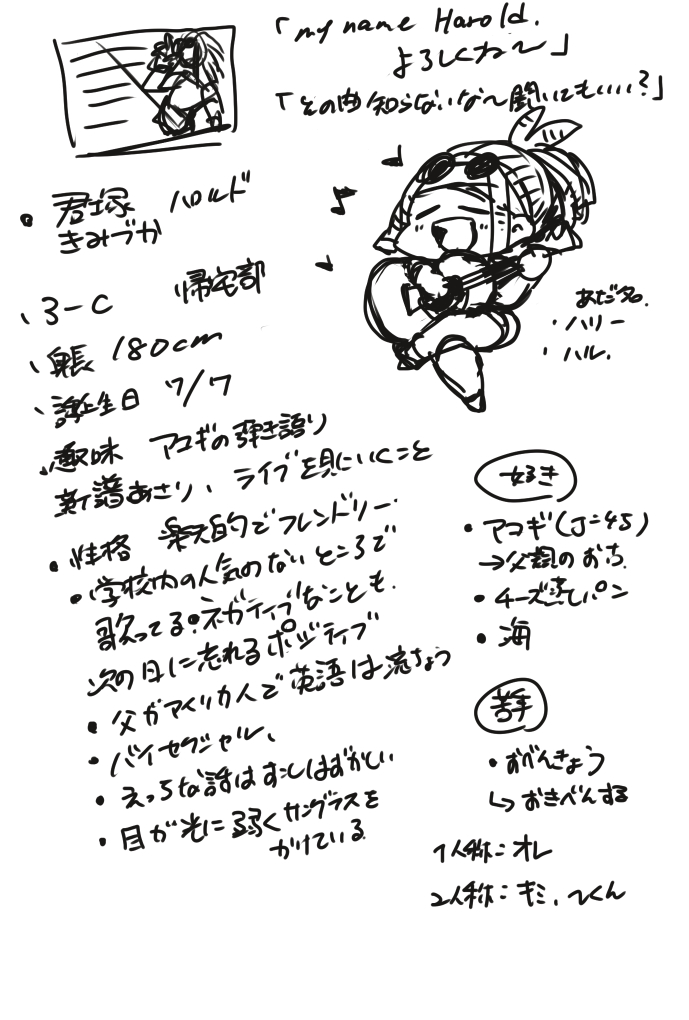 「my name Harold.
よろしくね〜」
「その曲知らないな〜聞いてもいい…?」
• 君塚 ハロルド
きみづか
、3-C 帰宅部
、身長 180cm
、誕生日 7/7
、趣味 アコギの弾き語り
新譜あさり、ライブを見にいくこと
• 性格 楽天的でフレンドリー.
• 学校内の人気のないところで
歌ってる。ネガティブなことも
次の日に忘れるポジティブ
• 父がアメリカ人で英語は流ちょう
• バイセクシャル、
• えっちな話はすこしはずかしい
• 目が光に弱くサングラスを
かけている
あだ名.
・ハリー
・ハル.
好き
• アコギ(J-45)
→父親のおふる
• チーズ蒸しパン
• 海
苦手
• おべんきょう
↳おきべんする
1人称:オレ
2人称:キミ、〜くん